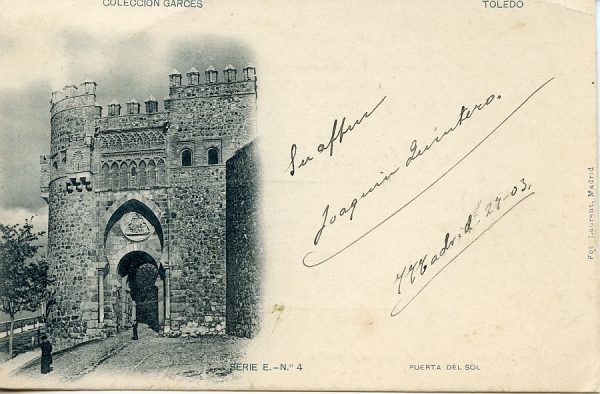 COLECCIÓN GARCÉS
TOLEDO
Su affmo
Joaquin Quintero.
Madrid. 27-03.
Fot. Laurent, Madrid
SERIE E.-N.º 4
PUERTA DEL SOL